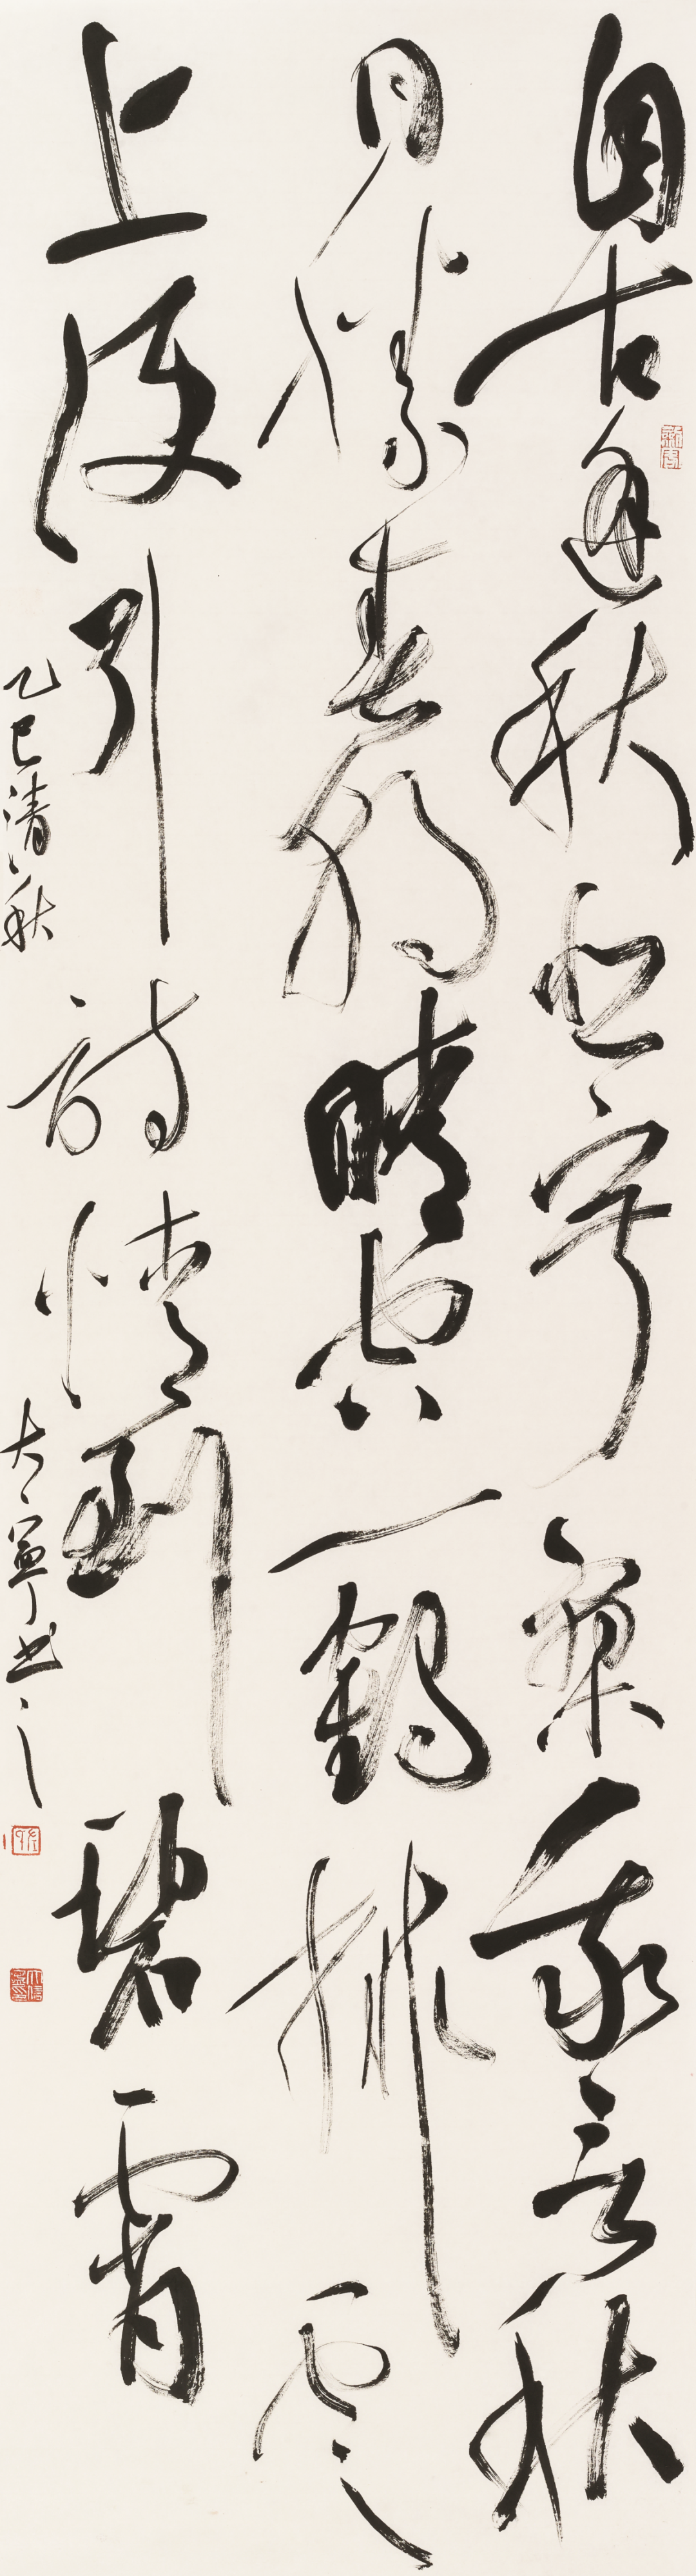 自古逢秋悲寂寥我言秋
日勝春朝晴空一鶴排雲
上便引詩情到碧霄
乙巳清秋 大寧书之